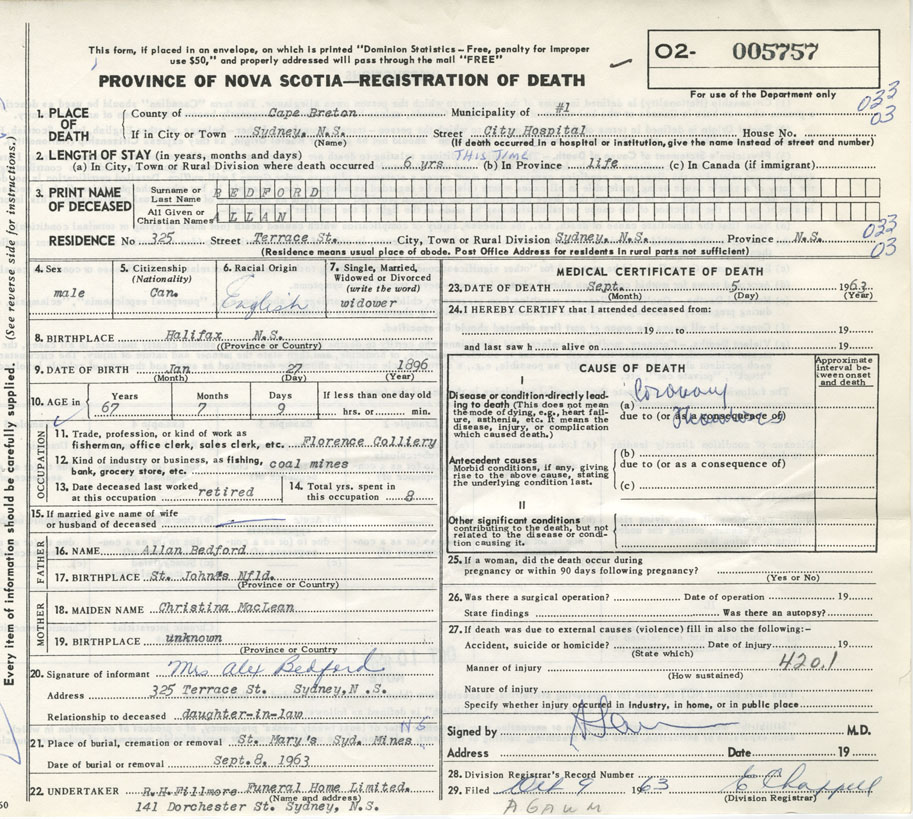 This form, if placed in an envelope, on which is printed "Dominion Statistics – Free, penalty for improper
use $50," and properly addressed will pass through the mail "FREE"
O2- 005757
For use of the Department only
PROVINCE OF NOVA SCOTIA—REGISTRATION OF DEATH
033
03
Every item of information should be carefully supplied. (See reverse side for instructions.)
1. PLACE OF DEATH
County of Cape Breton Municipality of #1
If in City or Town Sydney, N.S. Street City Hospital House No.
(Name) (If death occurred in a hospital or institution, give the name instead of street and number)
2. LENGTH OF STAY (in years, months and days) THIS TIME
(a) In City, Town or Rural Division where death occurred 6 yrs (b) In Province life (c) In Canada (if immigrant)
3. PRINT NAME OF DECEASED
Surname or Last Name BEDFORD
All Given or Christian Names ALLAN
033
03
RESIDENCE No 325 Street Terrace St. City, Town or Rural Division Sydney, N.S. Province N.S.
(Residence means usual place of abode. Post Office Address for residents in rural parts not sufficient)
4. Sex
male
5. Citizenship (Nationality)
Can.
6. Racial Origin
English
7. Single, Married, Widowed or Divorced (write the word)
widower
8. BIRTHPLACE Halifax N.S.
(Province or Country)
9. DATE OF BIRTH Jan 27 1896
(Month) (Day) (Year)
10. AGE in Years Months Days If less than one day old
67 7 9 hrs. or min.
OCCUPATION
11. Trade, profession, or kind of work as
fisherman, office clerk, sales clerk, etc. Florence Colliery
12. Kind of industry or business, as fishing,
bank, grocery store, etc. coal mines
13. Date deceased last worked
at this occupation retired
14. Total yrs. spent in
this occupation 8
15. If married give name of wife
or husband of deceased
FATHER
16. NAME Allan Bedford
17. BIRTHPLACE St. John's Nfld.
(Province or Country)
MOTHER
18. MAIDEN NAME Christina MacLean
19. BIRTHPLACE unknown
(Province or Country)
20. Signature of informant Mrs Alex Bedford
Address 325 Terrace St. Sydney, N.S.
Relationship to deceased daughter-in-law
NS
21. Place of burial, cremation or removal St. Mary's Syd. Mines
Date of burial or removal Sept. 8, 1963
22. UNDERTAKER R.H. Fillmore Funeral Home Limited.
(Name and address)
141 Dorchester St. Sydney, N.S.
MEDICAL CERTIFICATE OF DEATH
23. DATE OF DEATH Sept. 5 1963
(Month) (Day) (Year)
24. I HEREBY CERTIFY that I attended deceased from:
19 to 19
and last saw h alive on 19
CAUSE OF DEATH
Approximate interval between onset and death
I
Disease or condition directly leading to death (This does not mean the mode of dying, e.g., heart failure, asthenia, etc. It means the disease, injury, or complication which caused death.)
(a) Coronary
due to (or as a consequence of)
Antecedent causes
Morbid conditions, if any, giving rise to the above cause, stating the underlying condition last.
(b)
due to (or as a consequence of)
(c)
II
Other significant conditions
contributing to the death, but not related to the disease or condition causing it.
25. If a woman, did the death occur during
pregnancy or within 90 days following pregnancy?
(Yes or No)
26. Was there a surgical operation? Date of operation 19
State findings Was there an autopsy?
27. If death was due to external causes (violence) fill in also the following:-
Accident, suicide or homicide? Date of injury 19
(State which)
Manner of injury 420.1
(How sustained)
Nature of injury
Specify whether injury occurred in industry, in home, or in public place
Signed by M.D.
Address Date 19
28. Division Registrar's Record Number
29. Filed Oct 9 1963 E Chappell
(Division Registrar)